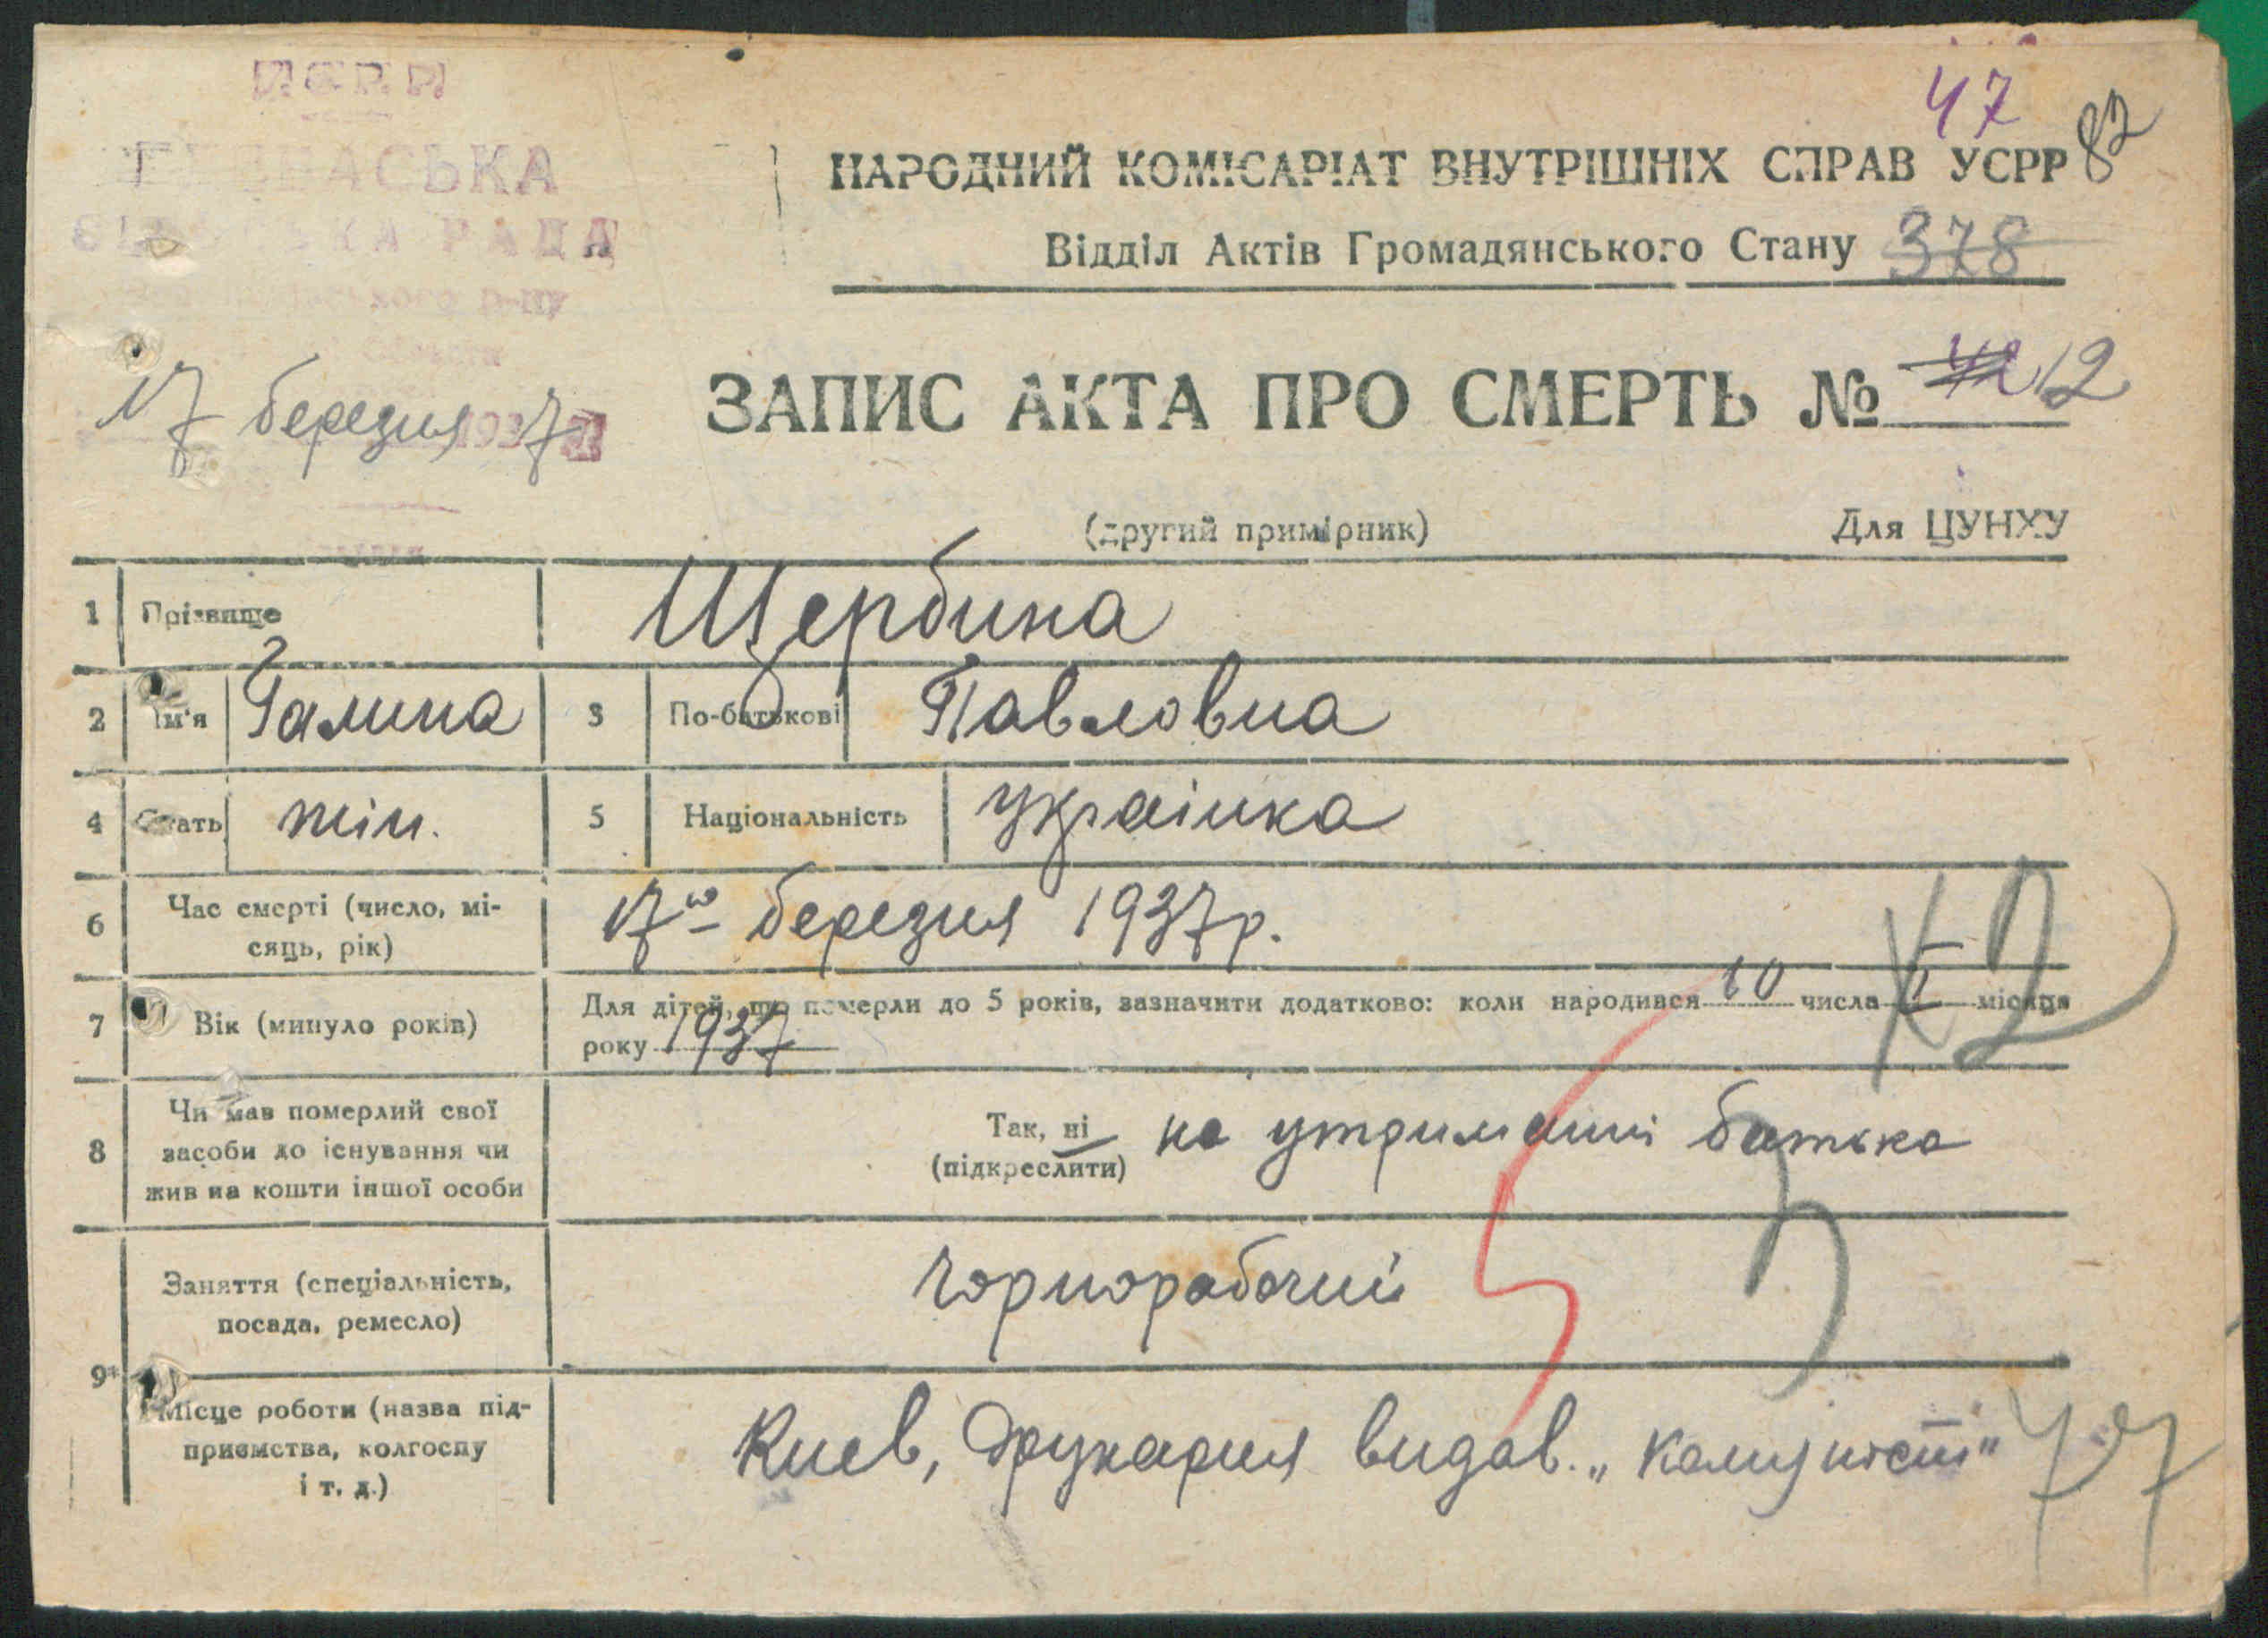 УСРР
РАДА
17 березня 1937
47
82
НАРОДНИЙ КОМІСАРІАТ ВНУТРІШНІХ СПРАВ УСРР
Відділ Актів Громадянського Стану 378
ЗАПИС АКТА ПРО СМЕРТЬ № 12
(другий примірник) Для ЦУНХУ
1 Прізвище Щербина
2 Ім'я Галина 3 По-батькові Павловна
4 Стать жін. 5 Національність украінка
6 Час смерті (число, мі-
сяць, рік) 17го березня 1937р.
7 Вік (минуло років) Для дітей, що померли до 5 років, зазначити додатково: коли народився 10 числа I місяця
року 1937
8 Чи мав померлий свої
засоби до існування чи
жив на кошти іншої особи
Так, ні на утриманні батька
(підкреслити)
9* Заняття (спеціальність,
посада, ремесло)
Чорнорабочий
Місце роботи (назва під-
приємства, колгоспу
і т. д.)
Киев, Друкарня видав. „Комуніст"